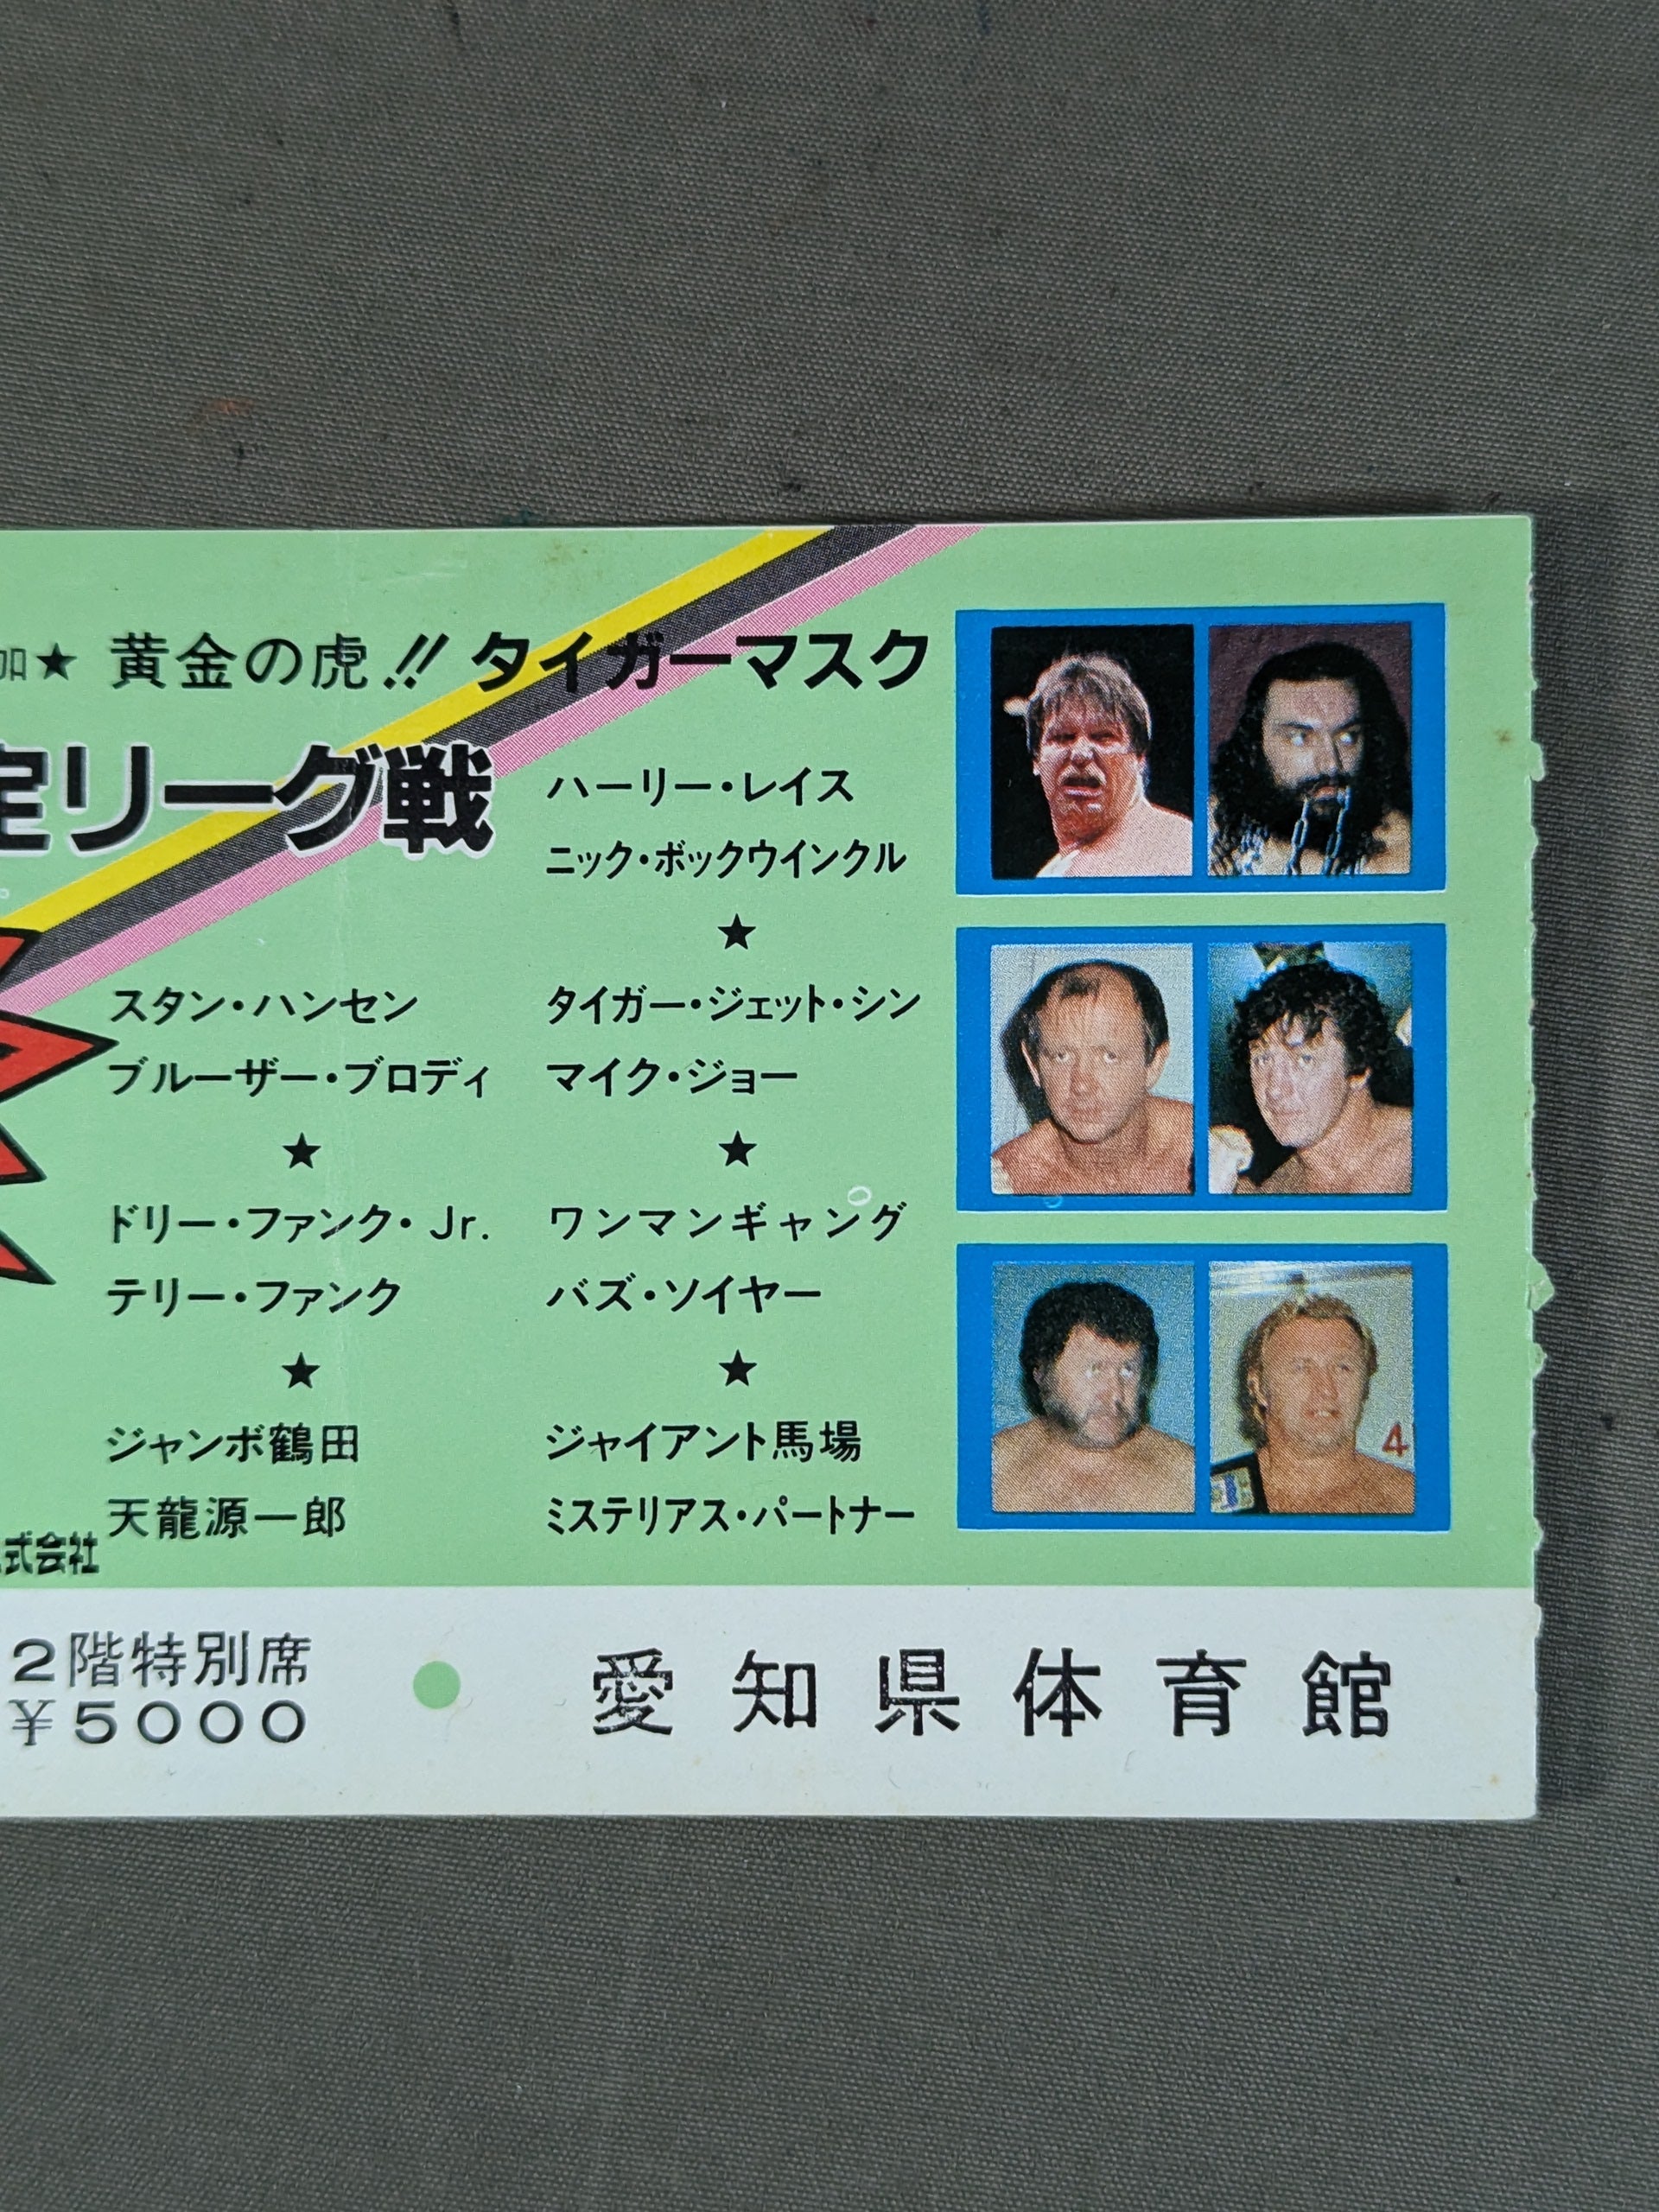 加★ 黄金の虎!! タイガーマスク
定リーグ戦
ハーリー・レイス
ニック・ボックウインクル
★
スタン・ハンセン
ブルーザー・ブロディ
★
ドリー・ファンク・Jr.
テリー・ファンク
★
ジャンボ鶴田
天龍源一郎
タイガー・ジェット・シン
マイク・ジョー
★
ワンマンギャング
バズ・ソイヤー
★
ジャイアント馬場
ミステリアス・パートナー
式会社
2階特別席
¥5000
愛知県体育館
4